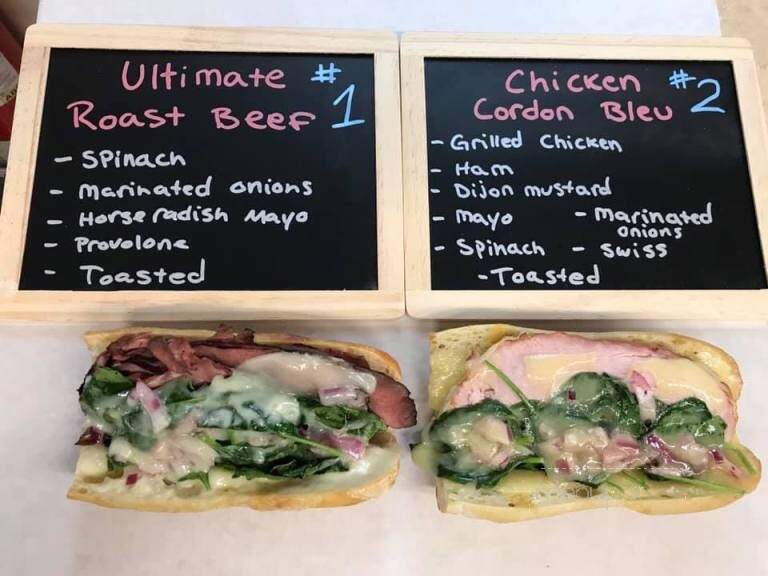 Ultimate #1
Roast Beef
- Spinach
- Marinated onions
- Horse radish Mayo
- Provolone
- Toasted
Chicken #2
Cordon Bleu
- Grilled Chicken
- Ham
- Dijon mustard
- mayo - marinated onions
- Spinach - Swiss
- Toasted